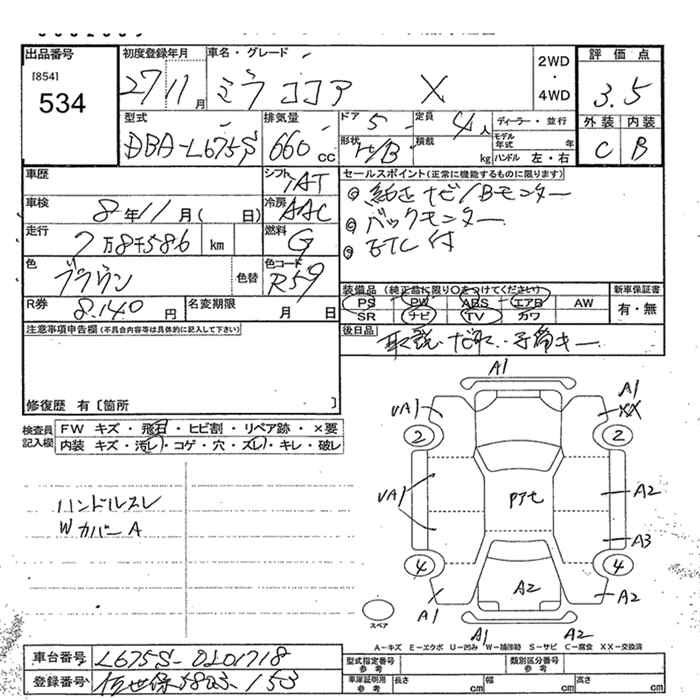 出品番号
[854]
534
初度登録年月
27 11 月
車名・グレード
ミラココア X
2WD
・
4WD
評価点
3.5
外装 内装
C B
型式
DBA-L675S
排気量
660 cc
ドア 5
定員 4人
ディーラー・並行
形状 H/B
積載 kg
モデル年式 年
ハンドル 左・右
車歴
シフト IAT
車検 8年11月( 日)
冷房 AAC
走行 7万8千586 km
燃料 G
色 ブラウン
色替
色コード R59
R券 8.140円
名変期限 月 日
セールスポイント(正常に機能するものに限ります)
◎ 純正ナビ/Bモンター
◎ バックモンター
◎ ETC付
装備品(純正品に限り○をつけてください)
PS PW ABS エアB AW
SR ナビ TV カワ
新車保証書
有・無
後日品
取説・ナ取・子筒キー
注意事項申告欄(不具合内容等は具体的に記入して下さい)
修復歴 有〔箇所 〕
検査員記入欄
FW キズ・飛石・ヒビ割・リペア跡・×要
内装 キズ・汚レ・コゲ・穴・スレ・キレ・破レ
ハンドルスレ
WカバーA
A1
UA1
A1
XX
2
2
UA1
アセ
A2
A3
4
4
X
A1
A2
A2
A1
A2
スペア
A-キズ E-エクボ U-凹み W-補修跡 S-サビ C-腐食 XX-交換済
車台番号 L675S-0201718
登録番号 佐世保580 153
型式指定番号 参考
類別区分番号 参考
車庫証明用 参考
長さ cm
幅 cm
高さ cm